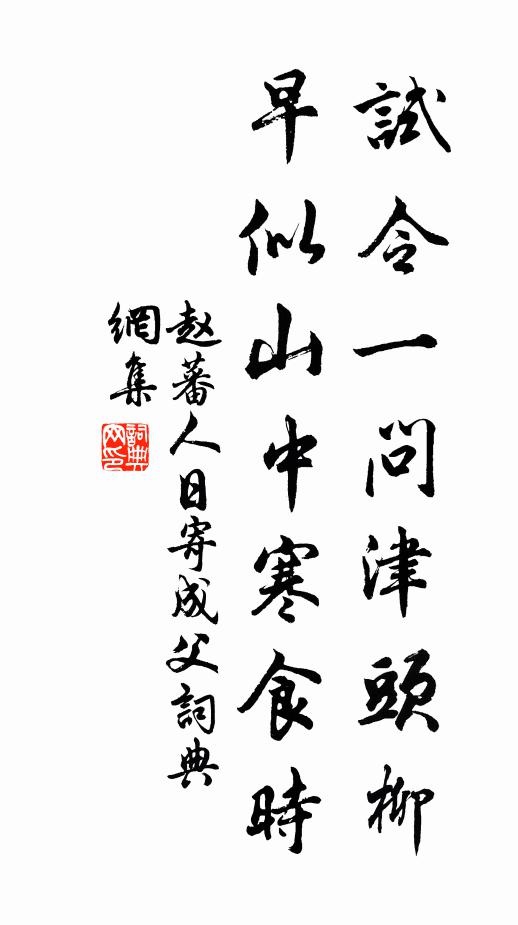 試令一問津頭柳
早似山中寒食時
赵蕃人日寄成父詞典
網集
詞典網印